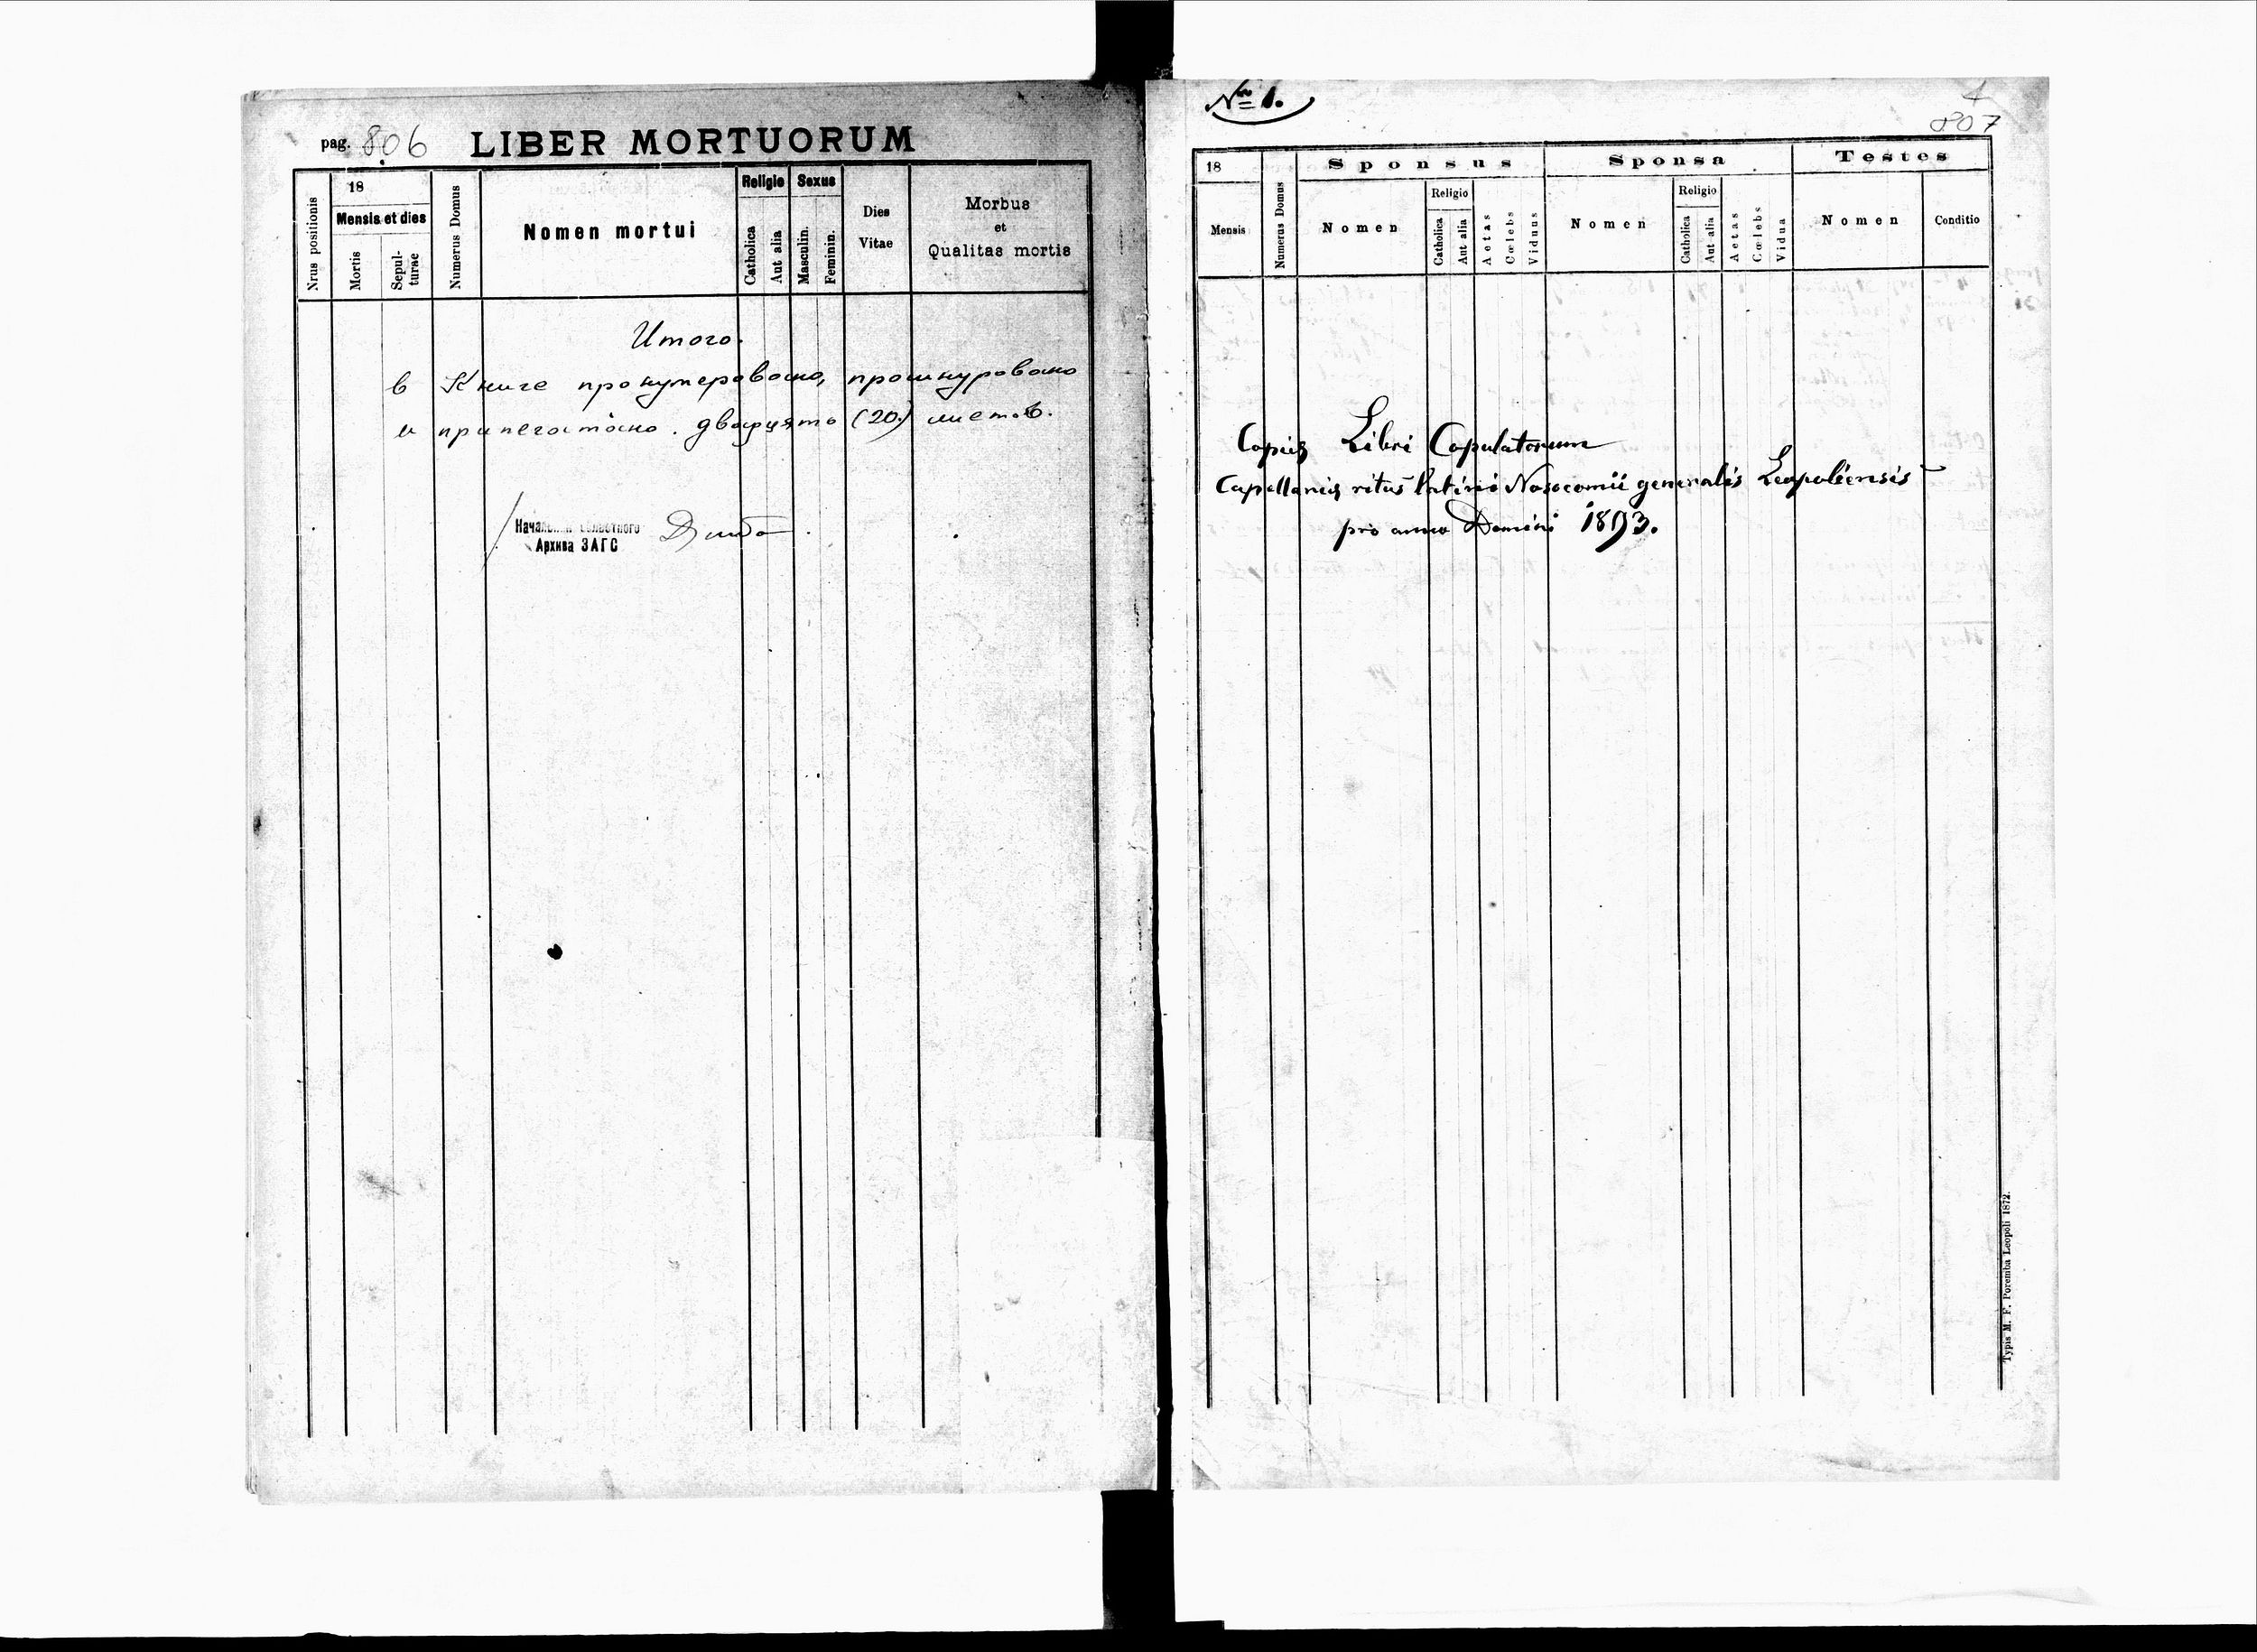 pag. 806 LIBER MORTUORUM
Nrus positionis
18
Mensis et dies
Mortis
Sepul-
turae
Numerus Domus
Nomen mortui
Religio
Catholica
Aut alia
Sexus
Masculin.
Feminin.
Dies
Vitae
Morbus
et
Qualitas mortis
Итого.
в Книге пронумеровано, прошнуровано
и припечатано. двадцять (20.) листов.
Архива ЗАГС
№ 1.
807
18
Mensis
Numerus Domus
Sponsus
Nomen
Religio
Catholica
Aut alia
Aetas
Cœlebs
Viduus
Sponsa
Nomen
Religio
Catholica
Aut alia
Aetas
Cœlebs
Vidua
Testes
Nomen
Conditio
Copia Libri Copulatorum
Capellania ritus latini Nosocomii generalis Leopoliensis
pro anno Domini 1893.
Typis M. F. Poremba Leopoli 1872.